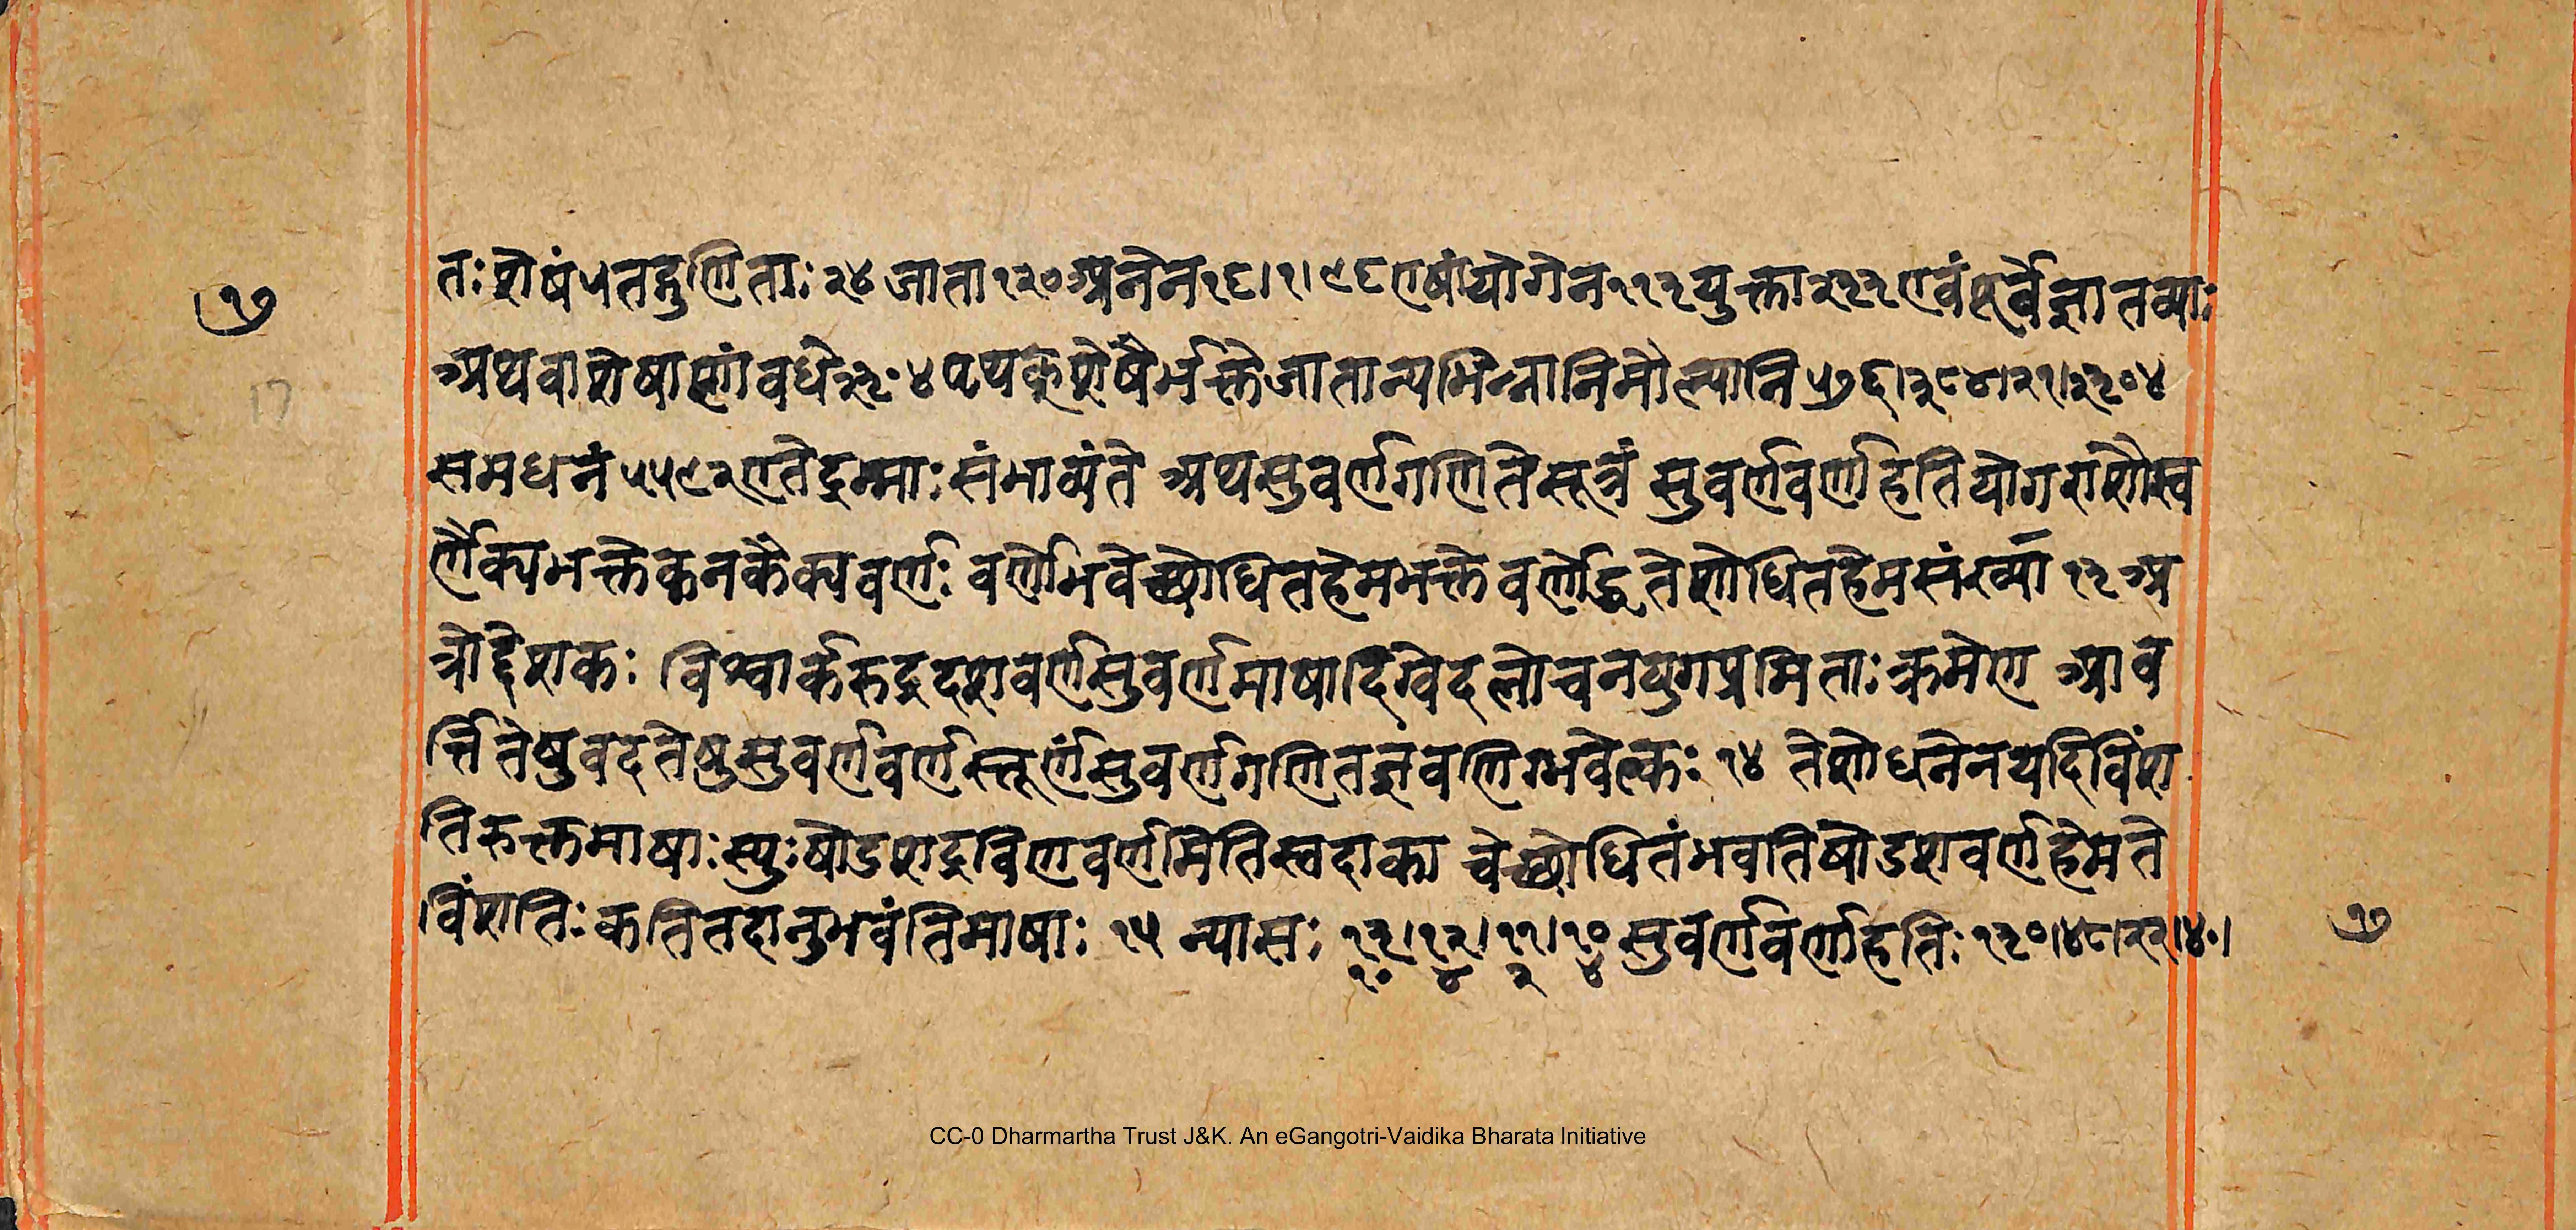 तः शेषं ५ तद्गुणिताः २४ जाता १२० अनेन १६।१।९६ एषां योगेन ११३ युक्ता २३३ एवं पूर्वे ज्ञातव्याः
अथवा शेषाणां वधे २३०४ पृथक् शेषैर्भक्ते जातान्यभिन्नानि मौल्यानि ५७६।३८४।२१।२३०४
समधनं ५५९२ एते द्रम्माः संभाव्यंते अथ सुवर्णगणिते सूत्रं सुवर्णवर्णाहतियोगराशौ स्व
र्णैक्यभक्ते कनकैक्यवर्णः वर्णो भवेच्छोधितहेमभक्ते वर्णोद्धृते शोधितहेमसंख्या १३ अ
त्रोद्देशकः विश्वार्करुद्रदशवर्णसुवर्णमाषा दिग्वेदलोचनयुगप्रमिताः क्रमेण आव
र्त्तितेषु वद तेषु सुवर्णवर्णस्तूर्णं सुवर्णगणितज्ञ वणिग्भवेत्कः १४ ते शोधनेन यदि विंश
तिरुक्तमाषाः स्युः षोडशद्रविणवर्णमितिस्त्वदा का चेच्छोधितं भवति षोडशवर्णहेम ते
विंशतिः कति तदा नु भवंति माषाः १५ न्यासः १३।१२।११।१० सुवर्णवर्णाहतिः १३०।४८।२२।४०।
१० ४ २ ४
१७
17
१७
CC-0 Dharmartha Trust J&K. An eGangotri-Vaidika Bharata Initiative